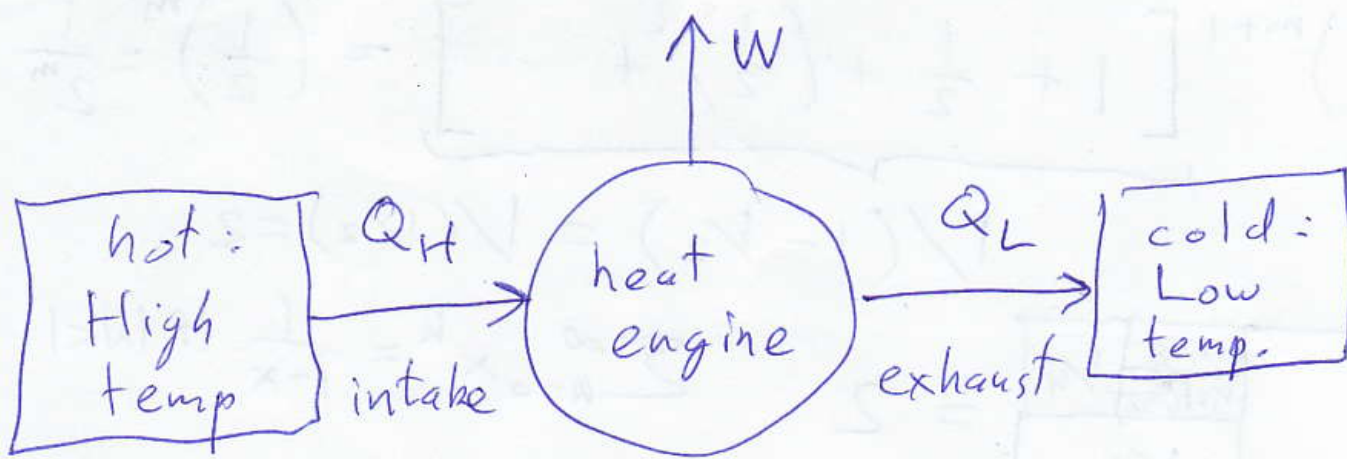 W
hot:
High
temp
Q_H
intake
heat
engine
Q_L
exhaust
cold:
Low
temp.